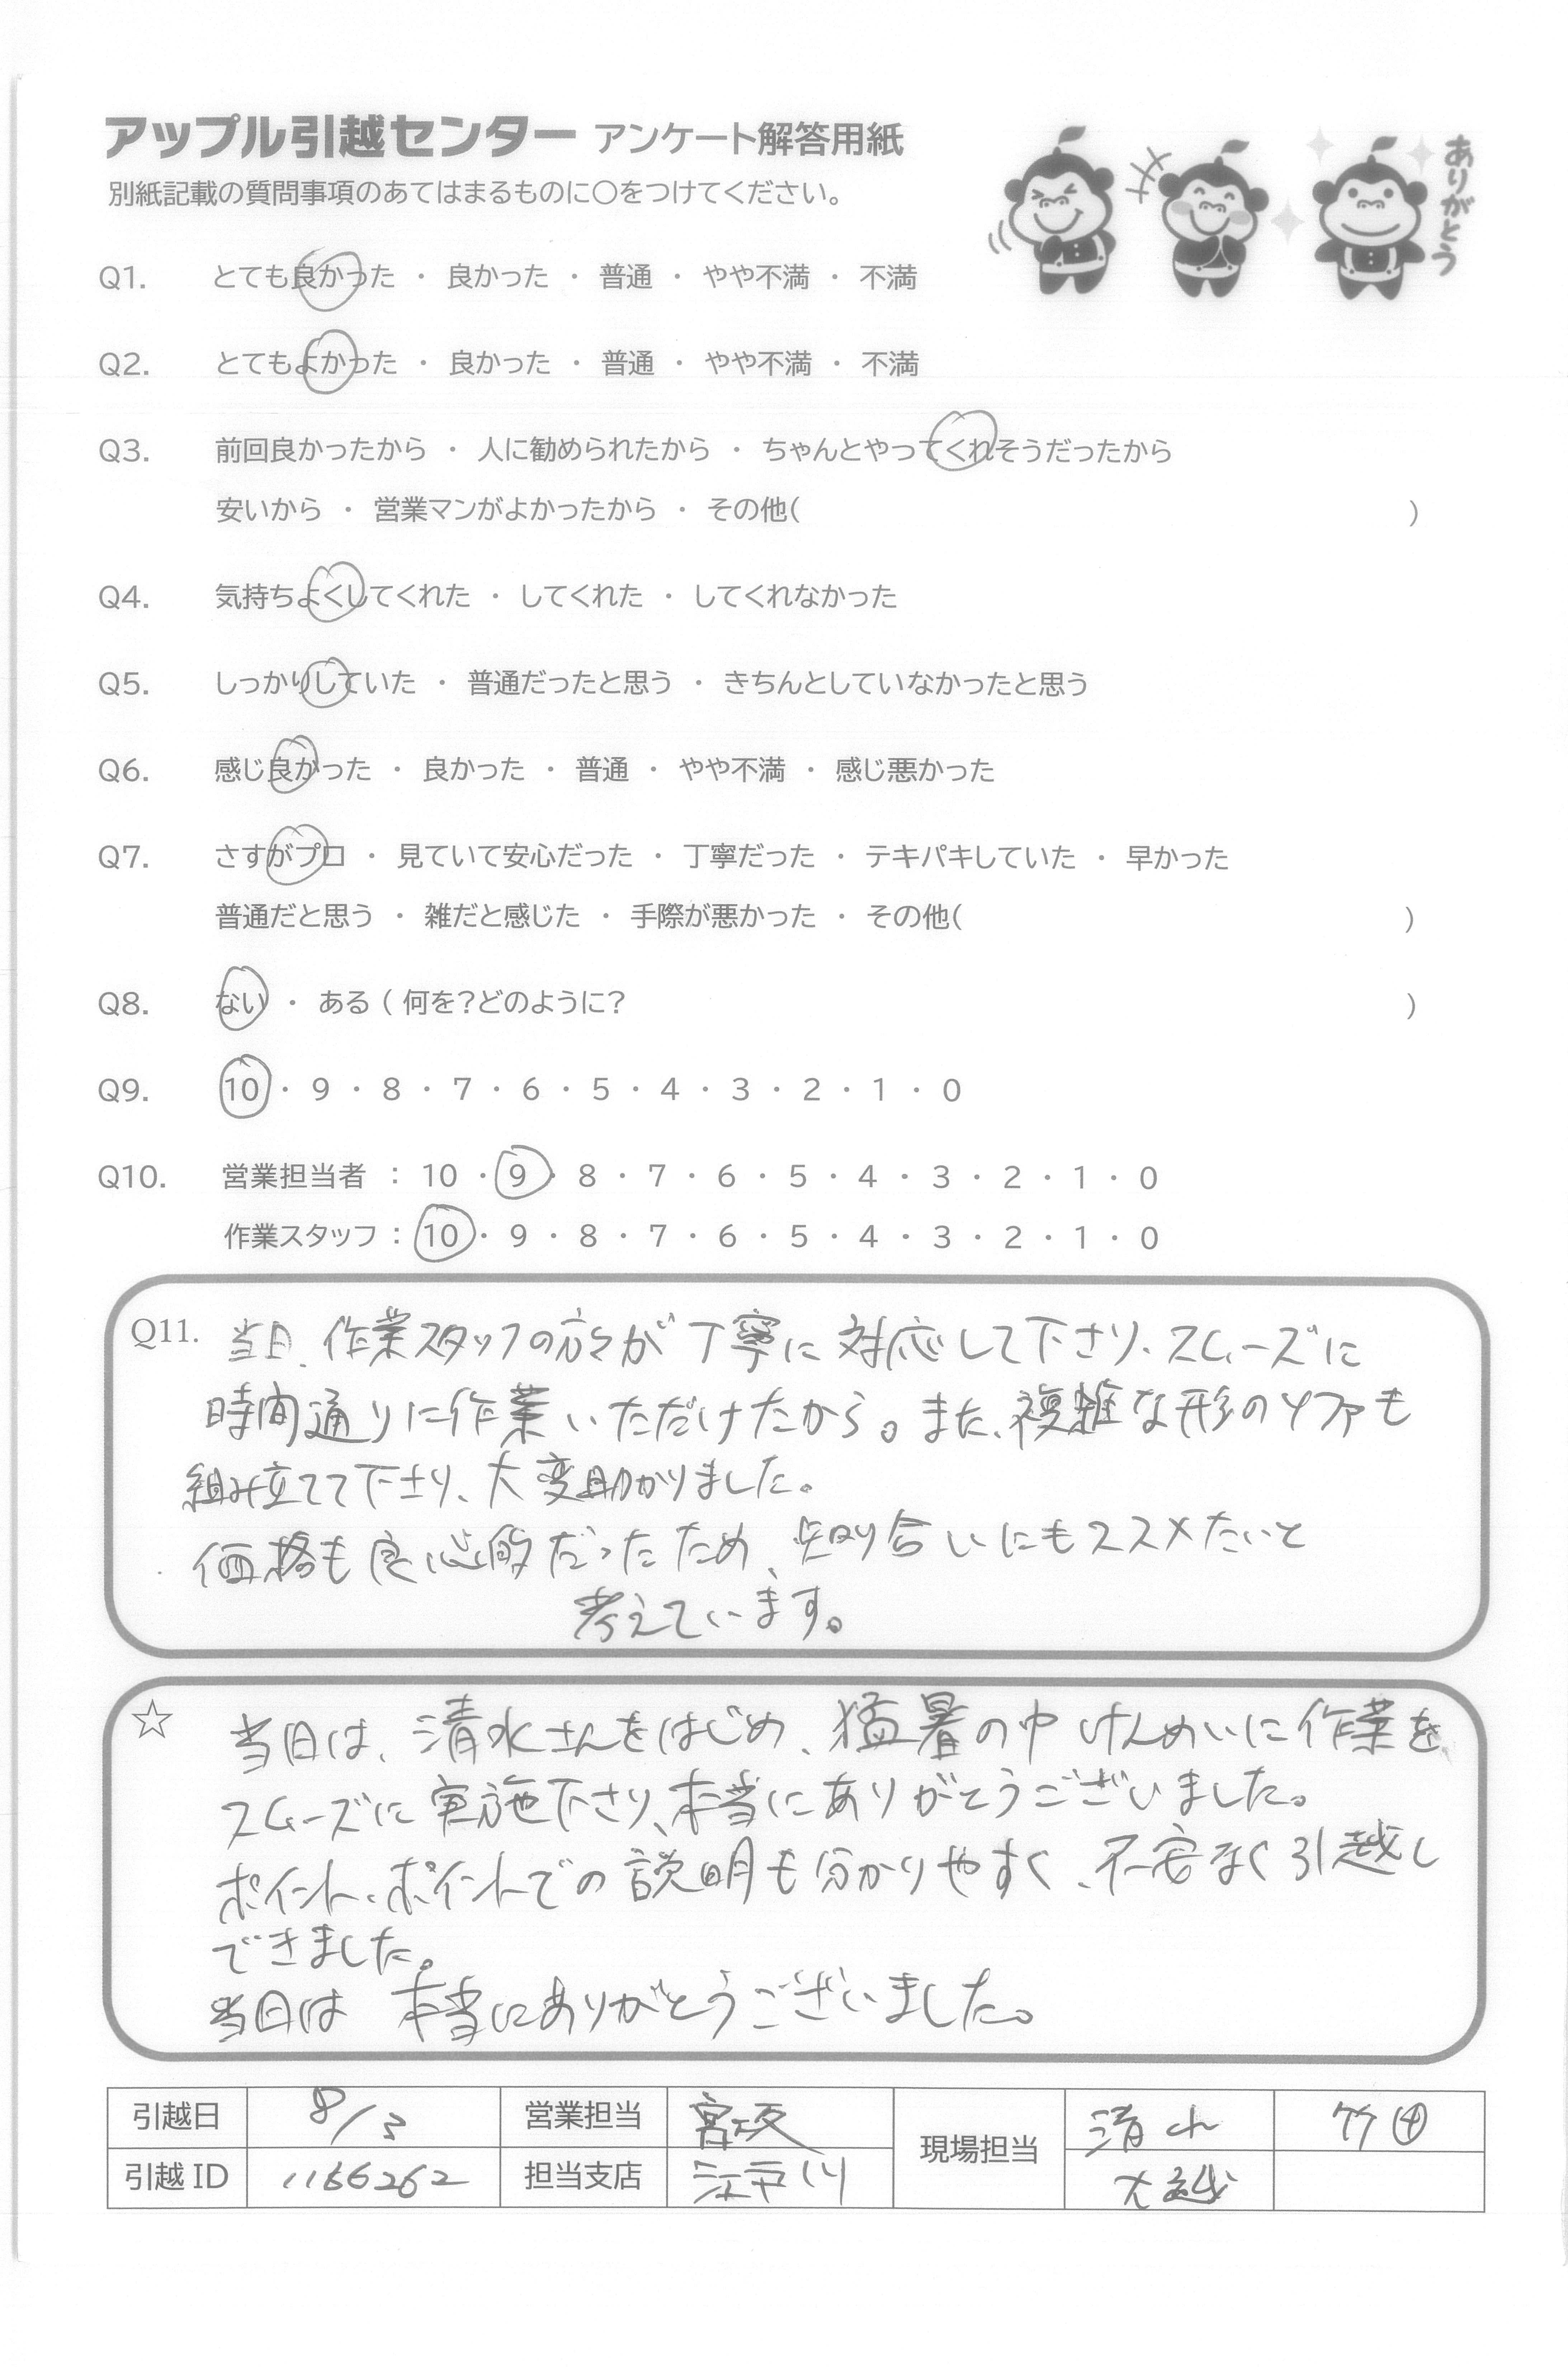 アップル引越センター アンケート解答用紙
別紙記載の質問事項のあてはまるものに○をつけてください。
ありがとう
Q1. とても良かった ・ 良かった ・ 普通 ・ やや不満 ・ 不満
Q2. とてもよかった ・ 良かった ・ 普通 ・ やや不満 ・ 不満
Q3. 前回良かったから ・ 人に勧められたから ・ ちゃんとやってくれそうだったから
安いから ・ 営業マンがよかったから ・ その他( )
Q4. 気持ちよくしてくれた ・ してくれた ・ してくれなかった
Q5. しっかりしていた ・ 普通だったと思う ・ きちんとしていなかったと思う
Q6. 感じ良かった ・ 良かった ・ 普通 ・ やや不満 ・ 感じ悪かった
Q7. さすがプロ ・ 見ていて安心だった ・ 丁寧だった ・ テキパキしていた ・ 早かった
普通だと思う ・ 雑だと感じた ・ 手際が悪かった ・ その他( )
Q8. ない ・ ある ( 何を?どのように? )
Q9. 10 ・ 9 ・ 8 ・ 7 ・ 6 ・ 5 ・ 4 ・ 3 ・ 2 ・ 1 ・ 0
Q10. 営業担当者 : 10 ・ 9 ・ 8 ・ 7 ・ 6 ・ 5 ・ 4 ・ 3 ・ 2 ・ 1 ・ 0
作業スタッフ : 10 ・ 9 ・ 8 ・ 7 ・ 6 ・ 5 ・ 4 ・ 3 ・ 2 ・ 1 ・ 0
Q11. 当日、作業スタッフの方々が丁寧に対応して下さり、スムーズに
時間通りに作業いただけたから。また、複雑な形のソファも
組み立てて下さり、大変助かりました。
価格も良心的だったため、知り合いにもススメたいと
考えています。
☆ 当日は、清水さんをはじめ、猛暑の中けんめいに作業を
スムーズに実施下さり、本当にありがとうございました。
ポイント、ポイントでの説明も分かりやすく、不安なく引越し
できました。
当日は 本当にありがとうございました。
引越日 8/3 営業担当 宮坂 現場担当 清水 竹田
引越ID 1166262 担当支店 江戸川 大越